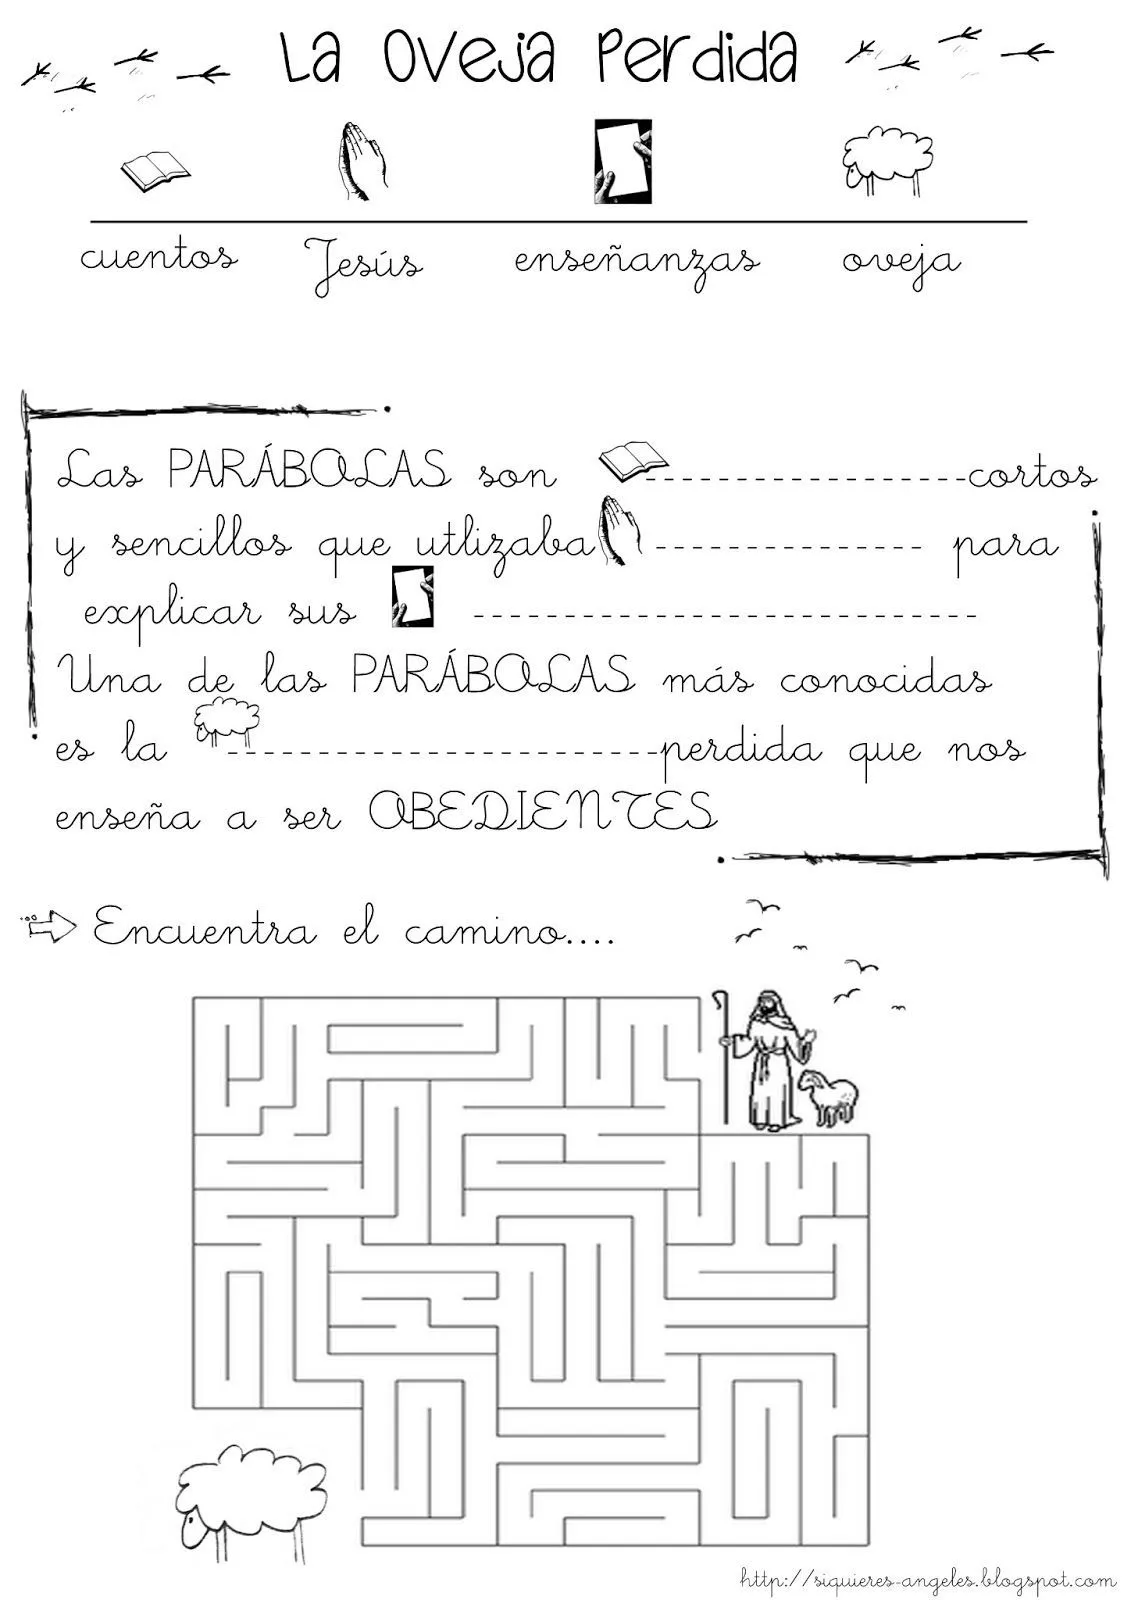 La Oveja Perdida
cuentos Jesús enseñanzas oveja
Las PARÁBOLAS son ------------------cortos
y sencillos que utlizaba --------------- para
explicar sus ----------------------------
Una de las PARÁBOLAS más conocidas
es la ------------------------perdida que nos
enseña a ser OBEDIENTES
Encuentra el camino....
http://siquieres-angeles.blogspot.com